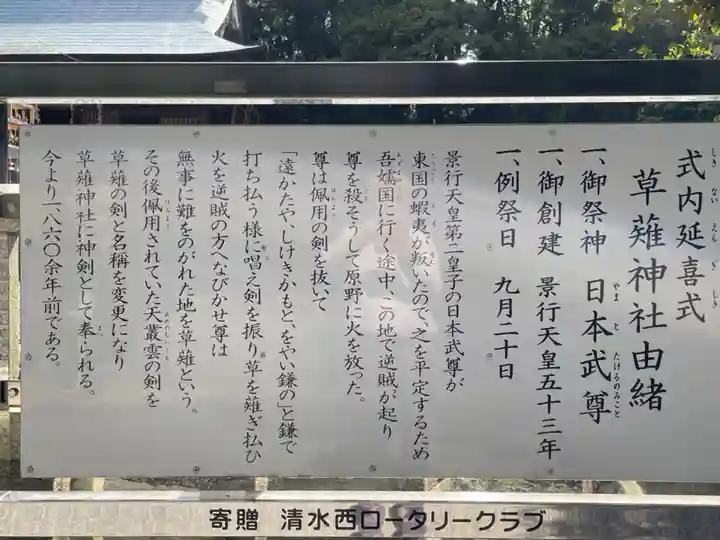 式内延喜式
草薙神社由緒
一、御祭神 日本武尊
一、御創建 景行天皇五十三年
一、例祭日 九月二十日
景行天皇第二皇子の日本武尊が
東国の蝦夷が叛いたので、之を平定するため
吾嬬国に行く途中、この地で逆賊が起り
尊を殺そうして原野に火を放った。
尊は佩用の剣を抜いて
「遠かたや、しげきかもと、をやい鎌の」と鎌で
打ち払う様に唱え剣を振り草を薙ぎ払ひ
火を逆賊の方へなびかせ尊は
無事に難をのがれた地を草薙という。
その後佩用されていた天叢雲の剣を
草薙の剣と名稱を変更になり
草薙神社に神剣として奉られる。
今より一八六〇余年前である。
寄贈 清水西ロータリークラブ